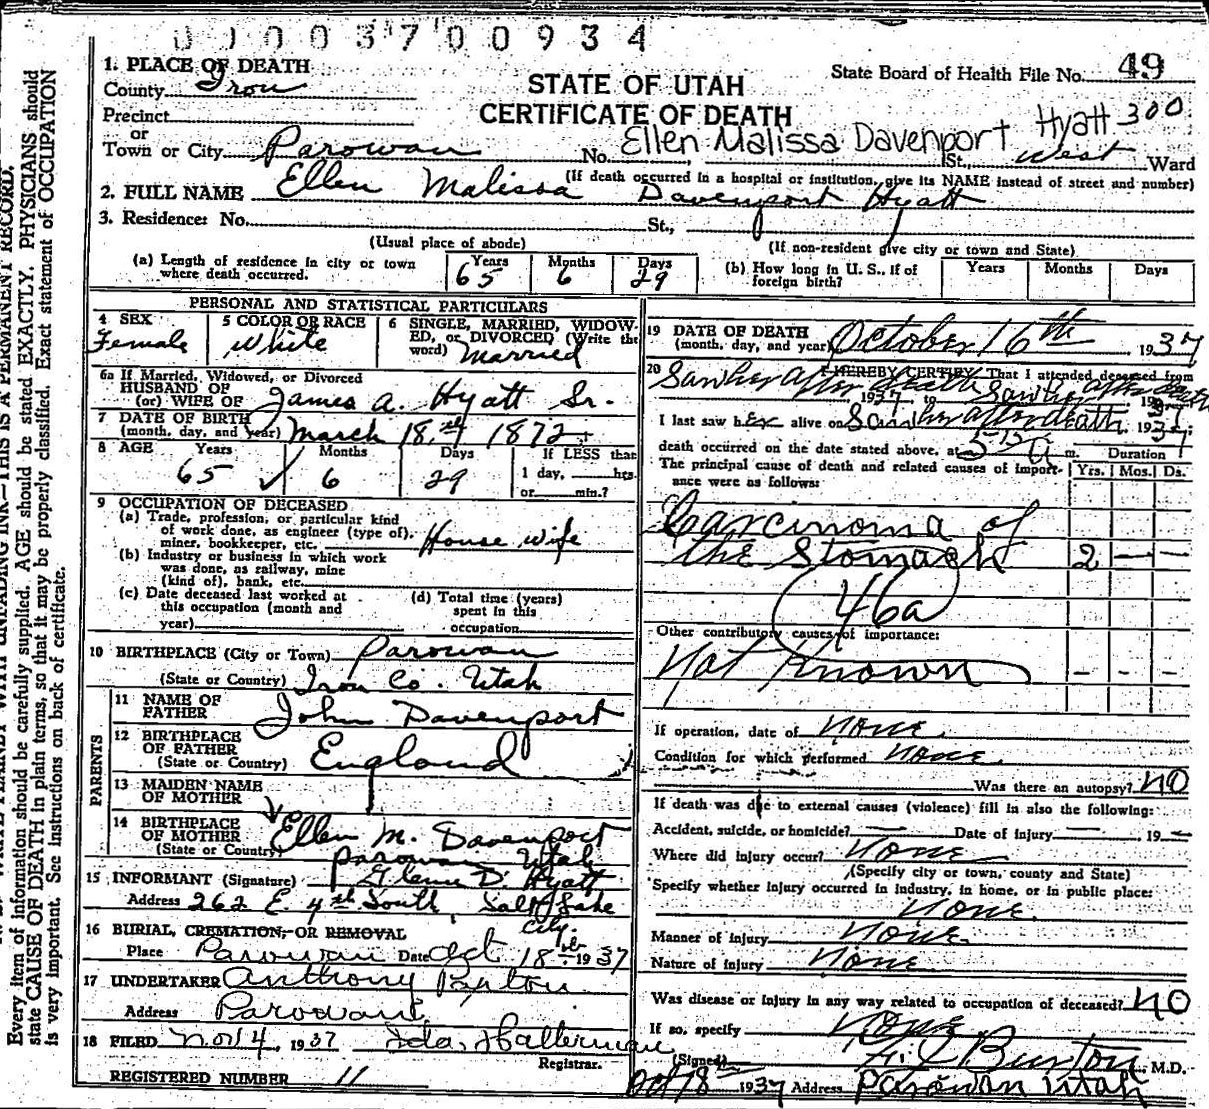 0 1 0 0 3 7 0 0 9 3 4
1. PLACE OF DEATH
County Iron
STATE OF UTAH
State Board of Health File No. 49
Precinct
CERTIFICATE OF DEATH
or
Ellen Malissa Davenport Hyatt 300
Town or City Parowan No. St., West Ward
(If death occurred in a hospital or institution, give its NAME instead of street and number)
2. FULL NAME Ellen Malissa Davenport Hyatt
3. Residence: No. St.,
(Usual place of abode) (If non-resident give city or town and State)
(a) Length of residence in city or town where death occurred. Years 65 Months 6 Days 29
(b) How long in U. S., if of foreign birth? Years Months Days
PERSONAL AND STATISTICAL PARTICULARS
4 SEX Female
5 COLOR OR RACE White
6 SINGLE, MARRIED, WIDOWED, or DIVORCED (Write the word) Married
6a If Married, Widowed, or Divorced
HUSBAND OF
(or) WIFE OF James A. Hyatt Sr.
7 DATE OF BIRTH
(month, day, and year) March 18th 1872
8 AGE Years 65 Months 6 Days 29 If LESS than 1 day, hrs. or min.?
9 OCCUPATION OF DECEASED
(a) Trade, profession, or particular kind
of work done, as engineer (type of),
miner, bookkeeper, etc. House wife
(b) Industry or business in which work
was done, as railway, mine
(kind of), bank, etc.
(c) Date deceased last worked at
this occupation (month and
year)
(d) Total time (years)
spent in this
occupation
10 BIRTHPLACE (City or Town) Parowan
(State or Country) Iron Co. Utah
PARENTS
11 NAME OF FATHER John Davenport
12 BIRTHPLACE OF FATHER
(State or Country) England
13 MAIDEN NAME OF MOTHER
14 BIRTHPLACE OF MOTHER Ellen M. Davenport
(State or Country) Parowan Utah
15 INFORMANT (Signature) Glenn D. Hyatt
Address 262 E. 4th South, Salt Lake City.
16 BURIAL, CREMATION, OR REMOVAL
Place Parowan Date Oct 18th 1937
17 UNDERTAKER Anthony Paxton
Address Parowan
18 FILED Nov 4, 1937 Ida Halterman
Registrar.
REGISTERED NUMBER 11
19 DATE OF DEATH
(month, day, and year) October 16th 1937
20 I HEREBY CERTIFY, That I attended deceased from
Saw her after death 1937 to Saw her after death 1937
I last saw her alive on Saw her after death, 1937;
death occurred on the date stated above, at a m.
Duration
The principal cause of death and related causes of importance were as follows: Yrs. Mos. Ds.
Carcinoma of
the Stomach 2 — —
46a
Other contributory causes of importance:
Not Known - - -
If operation, date of None
Condition for which performed None
Was there an autopsy? NO
If death was due to external causes (violence) fill in also the following:
Accident, suicide, or homicide? — Date of injury — 19 —
Where did injury occur? None
(Specify city or town, county and State)
Specify whether injury occurred in industry, in home, or in public place:
None.
Manner of injury None
Nature of injury None
Was disease or injury in any way related to occupation of deceased? NO
If so, specify None
(Signed) Burton, M.D.
Oct 18 1937 Address Parowan Utah
Every item of information should be carefully supplied. AGE should be stated EXACTLY. PHYSICIANS should
state CAUSE OF DEATH in plain terms, so that it may be properly classified. Exact statement of OCCUPATION
is very important. See instructions on back of certificate.